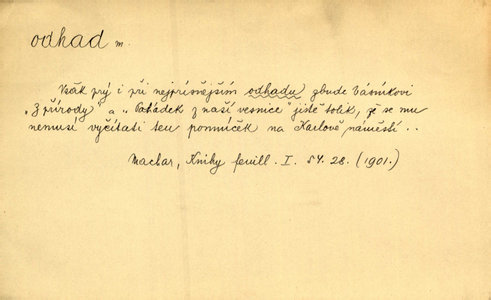 odhad m.
Však prý i při nejpřísnějším odhadu zbude básníkovi
„Z přírody" a „Pohádek z naší vesnice" jistě tolik, že se mu
nemusí vyčítati ten pomníček na Karlově náměstí . .
Machar, Knihy feuill. I. 54. 28. (1901.)